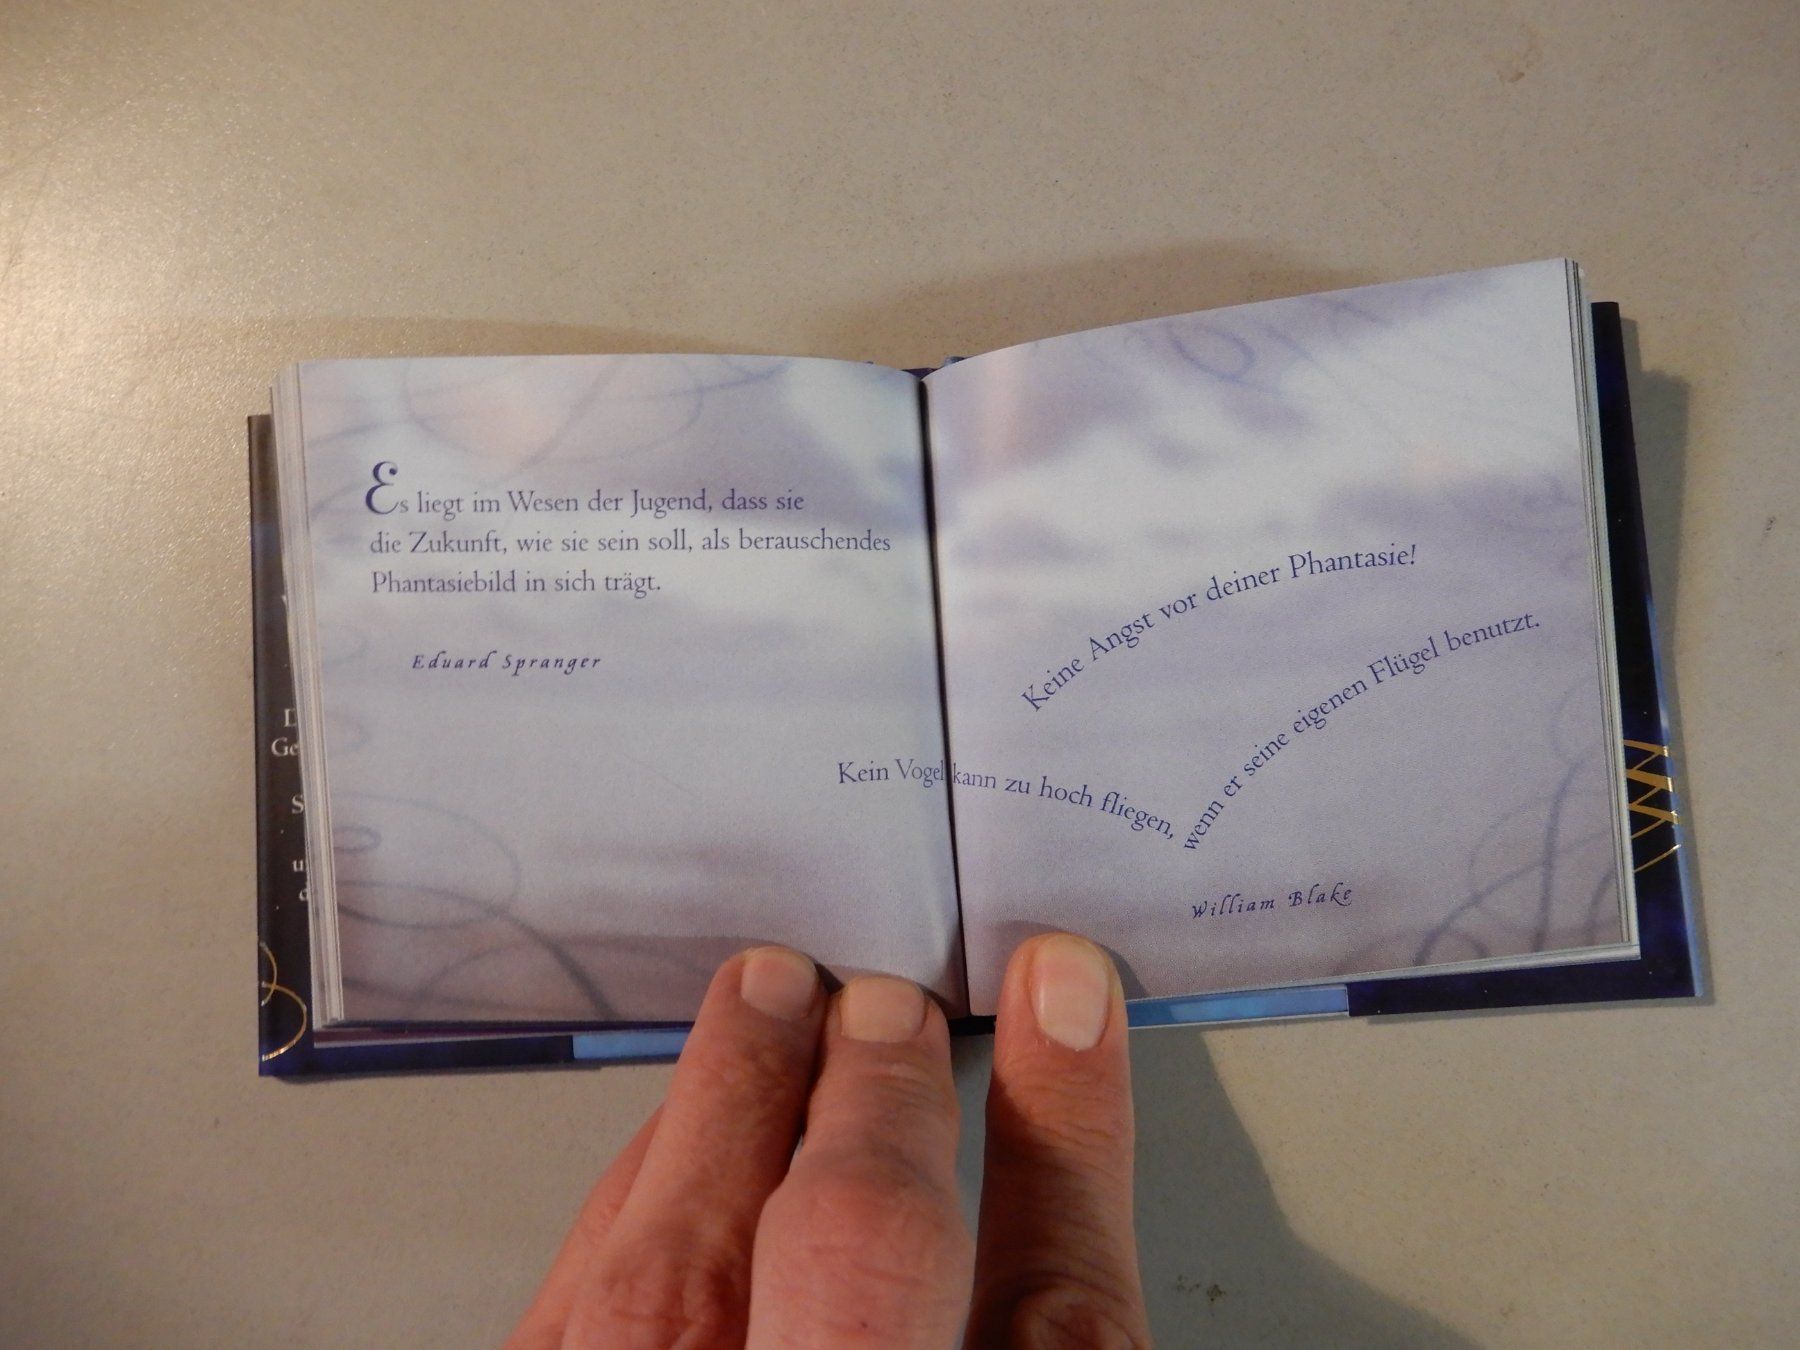 Es liegt im Wesen der Jugend, dass sie
die Zukunft, wie sie sein soll, als berauschendes
Phantasiebild in sich trägt.
Eduard Spranger
Keine Angst vor deiner Phantasie!
Kein Vogel kann zu hoch fliegen,
wenn er seine eigenen Flügel benutzt.
William Blake